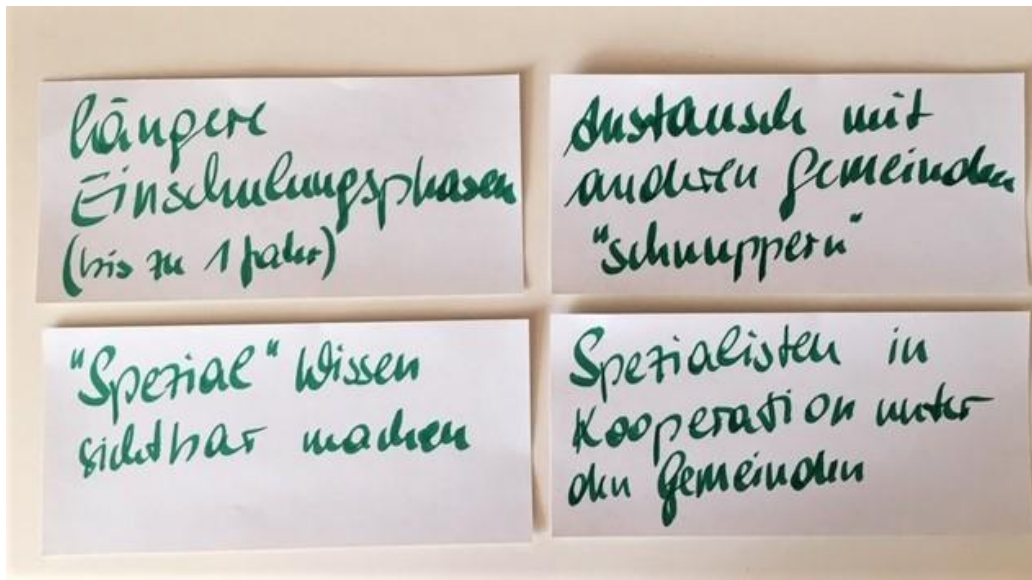 längere
Einschulungsphasen
(bis zu 1 Jahr)
Austausch mit
anderen Gemeinden
"schnuppern"
"Spezial" Wissen
sichtbar machen
Spezialisten in
Kooperation unter
den Gemeinden